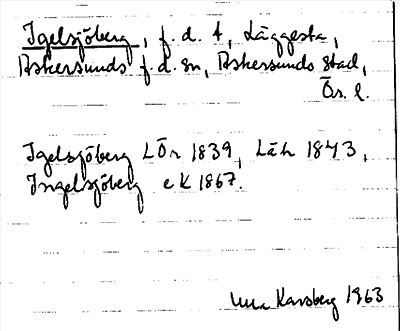 Igelsjöberg, f.d. t, Läggesta,
Askersunds f.d. sn, Askersunds stad,
Ör. l.
Igelsjöberg LÖr 1839, Läh 1843,
Ingelsjöberg eK 1867.
Karsberg 1963